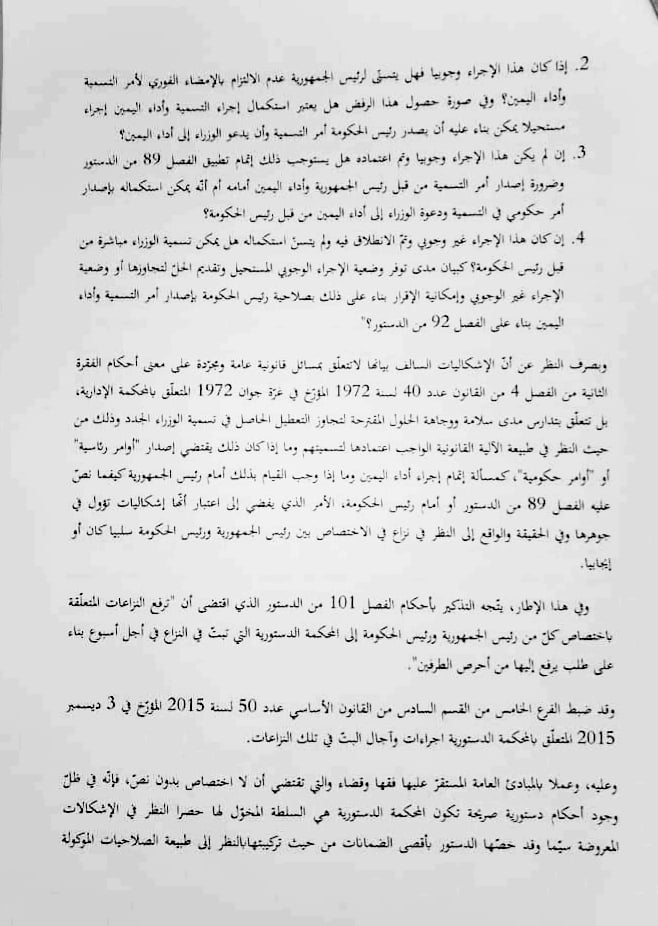 2. إذا كان هذا الإجراء وجوبيا فهل يتسنّى لرئيس الجمهورية عدم الالتزام بالإمضاء الفوري لأمر التسمية
وأداء اليمين؟ وفي صورة حصول هذا الرفض هل يعتبر استكمال إجراء التسمية وأداء اليمين إجراء
مستحيلا يمكن بناء عليه أن يصدر رئيس الحكومة أمر التسمية وأن يدعو الوزراء إلى أداء اليمين؟
3. إن لم يكن هذا الإجراء وجوبيا وتم اعتماده هل يستوجب ذلك إتمام تطبيق الفصل 89 من الدستور
وضرورة إصدار أمر التسمية من قبل رئيس الجمهورية وأداء اليمين أمامه أم أنّه يمكن استكماله بإصدار
أمر حكومي في التسمية ودعوة الوزراء إلى أداء اليمين من قبل رئيس الحكومة؟
4. إن كان هذا الإجراء غير وجوبي وتمّ الانطلاق فيه ولم يتسنّ استكماله هل يمكن تسمية الوزراء مباشرة من
قبل رئيس الحكومة؟ كبيان مدى توفر وضعية الإجراء الوجوبي المستحيل وتقديم الحلّ لتجاوزها أو وضعية
الإجراء غير الوجوبي وإمكانية الإقرار بناء على ذلك بصلاحية رئيس الحكومة بإصدار أمر التسمية وأداء
اليمين بناء على الفصل 92 من الدستور؟"
وبصرف النظر عن أنّ الإشكاليات السالف بيانها لاتتعلّق بمسائل قانونية عامة ومجرّدة على معنى أحكام الفقرة
الثانية من الفصل 4 من القانون عدد 40 لسنة 1972 المؤرّخ في غرّة جوان 1972 المتعلّق بالمحكمة الإدارية،
بل تتعلّق بتدارس مدى سلامة ووجاهة الحلول المقترحة لتجاوز التعطيل الحاصل في تسمية الوزراء الجدد وذلك من
حيث النظر في طبيعة الآلية القانونية الواجب اعتمادها لتسميتهم وما إذا كان ذلك يقتضي إصدار "أوامر رئاسية"
أو "أوامر حكومية"، كمسألة إتمام إجراء أداء اليمين وما إذا وجب القيام بذلك أمام رئيس الجمهورية كيفما نصّ
عليه الفصل 89 من الدستور أو أمام رئيس الحكومة، الأمر الذي يفضي إلى اعتبار أنّها إشكاليات تؤول في
جوهرها وفي الحقيقة والواقع إلى النظر في نزاع في الاختصاص بين رئيس الجمهورية ورئيس الحكومة سلبيا كان أو
إيجابيا.
وفي هذا الإطار، يتّجه التذكير بأحكام الفصل 101 من الدستور الذي اقتضى أن "ترفع النزاعات المتعلّقة
باختصاص كلّ من رئيس الجمهورية ورئيس الحكومة إلى المحكمة الدستورية التي تبتّ في النزاع في أجل أسبوع بناء
على طلب يرفع إليها من أحرص الطرفين".
وقد ضبط الفرع الخامس من القسم السادس من القانون الأساسي عدد 50 لسنة 2015 المؤرّخ في 3 ديسمبر
2015 المتعلّق بالمحكمة الدستورية اجراءات وآجال البتّ في تلك النزاعات.
وعليه، وعملا بالمبادئ العامة المستقرّ عليها فقها وقضاء والتي تقتضي أن لا اختصاص بدون نصّ، فإنّه في ظلّ
وجود أحكام دستورية صريحة تكون المحكمة الدستورية هي السلطة المخوّل لها حصرا النظر في الإشكالات
المعروضة سيّما وقد خصّها الدستور بأقصى الضمانات من حيث تركيبتهابالنظر إلى طبيعة الصلاحيات الموكولة